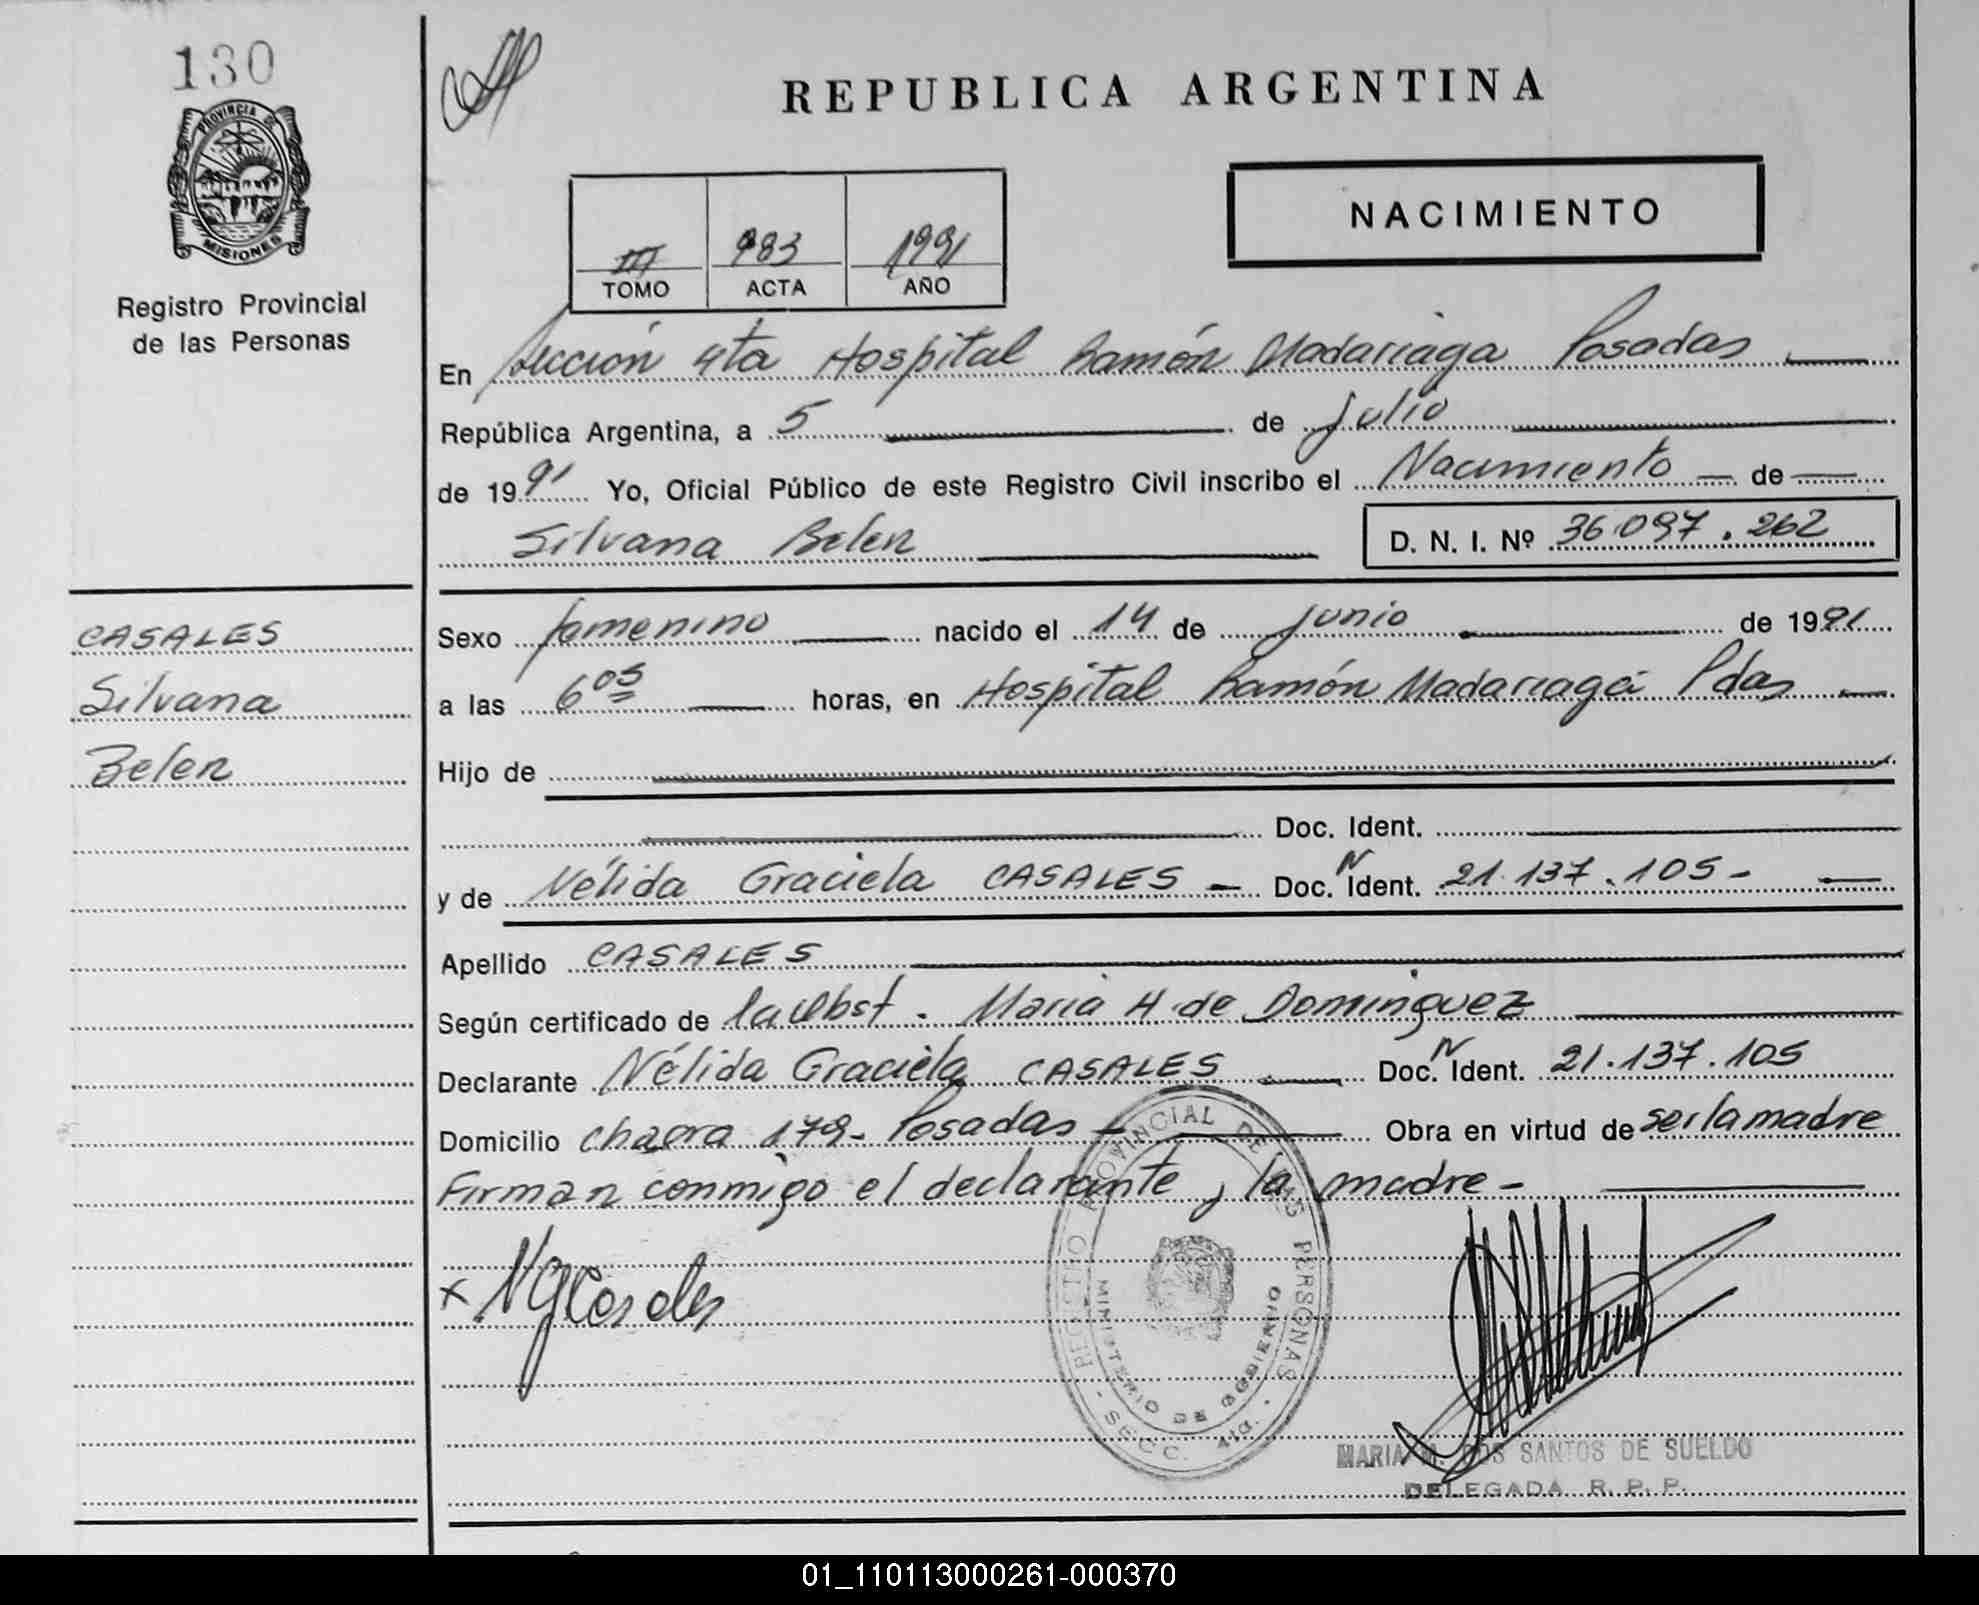 130
PROVINCIA DE
MISIONES
Registro Provincial
de las Personas
CASALES
Silvana
Belen
REPUBLICA ARGENTINA
NACIMIENTO
III 983 1991
TOMO ACTA AÑO
En Sección 4ta Hospital Ramón Madariaga Posadas
República Argentina, a 5 de Julio
de 1991 Yo, Oficial Público de este Registro Civil inscribo el Nacimiento de
Silvana Belen D. N. I. Nº 36.097.262
Sexo femenino nacido el 14 de Junio de 1991
a las 6 05 horas, en Hospital Ramón Madariaga Pdas
Hijo de
Doc. Ident.
y de Nélida Graciela CASALES - Doc. N Ident. 21.137.105-
Apellido CASALES
Según certificado de la Obst. Maria H de Dominguez
Declarante Nélida Graciela CASALES Doc. N Ident. 21.137.105
Domicilio chacra 179- Posadas - Obra en virtud de ser la madre
Firman conmigo el declarante, la madre -
x NGCasales
REGISTRO PROVINCIAL DE LAS PERSONAS
MINISTERIO DE GOBIERNO
- SECC. 4ta. -
MARIA M. DOS SANTOS DE SUELDO
DELEGADA R. P. P.
01_110113000261-000370